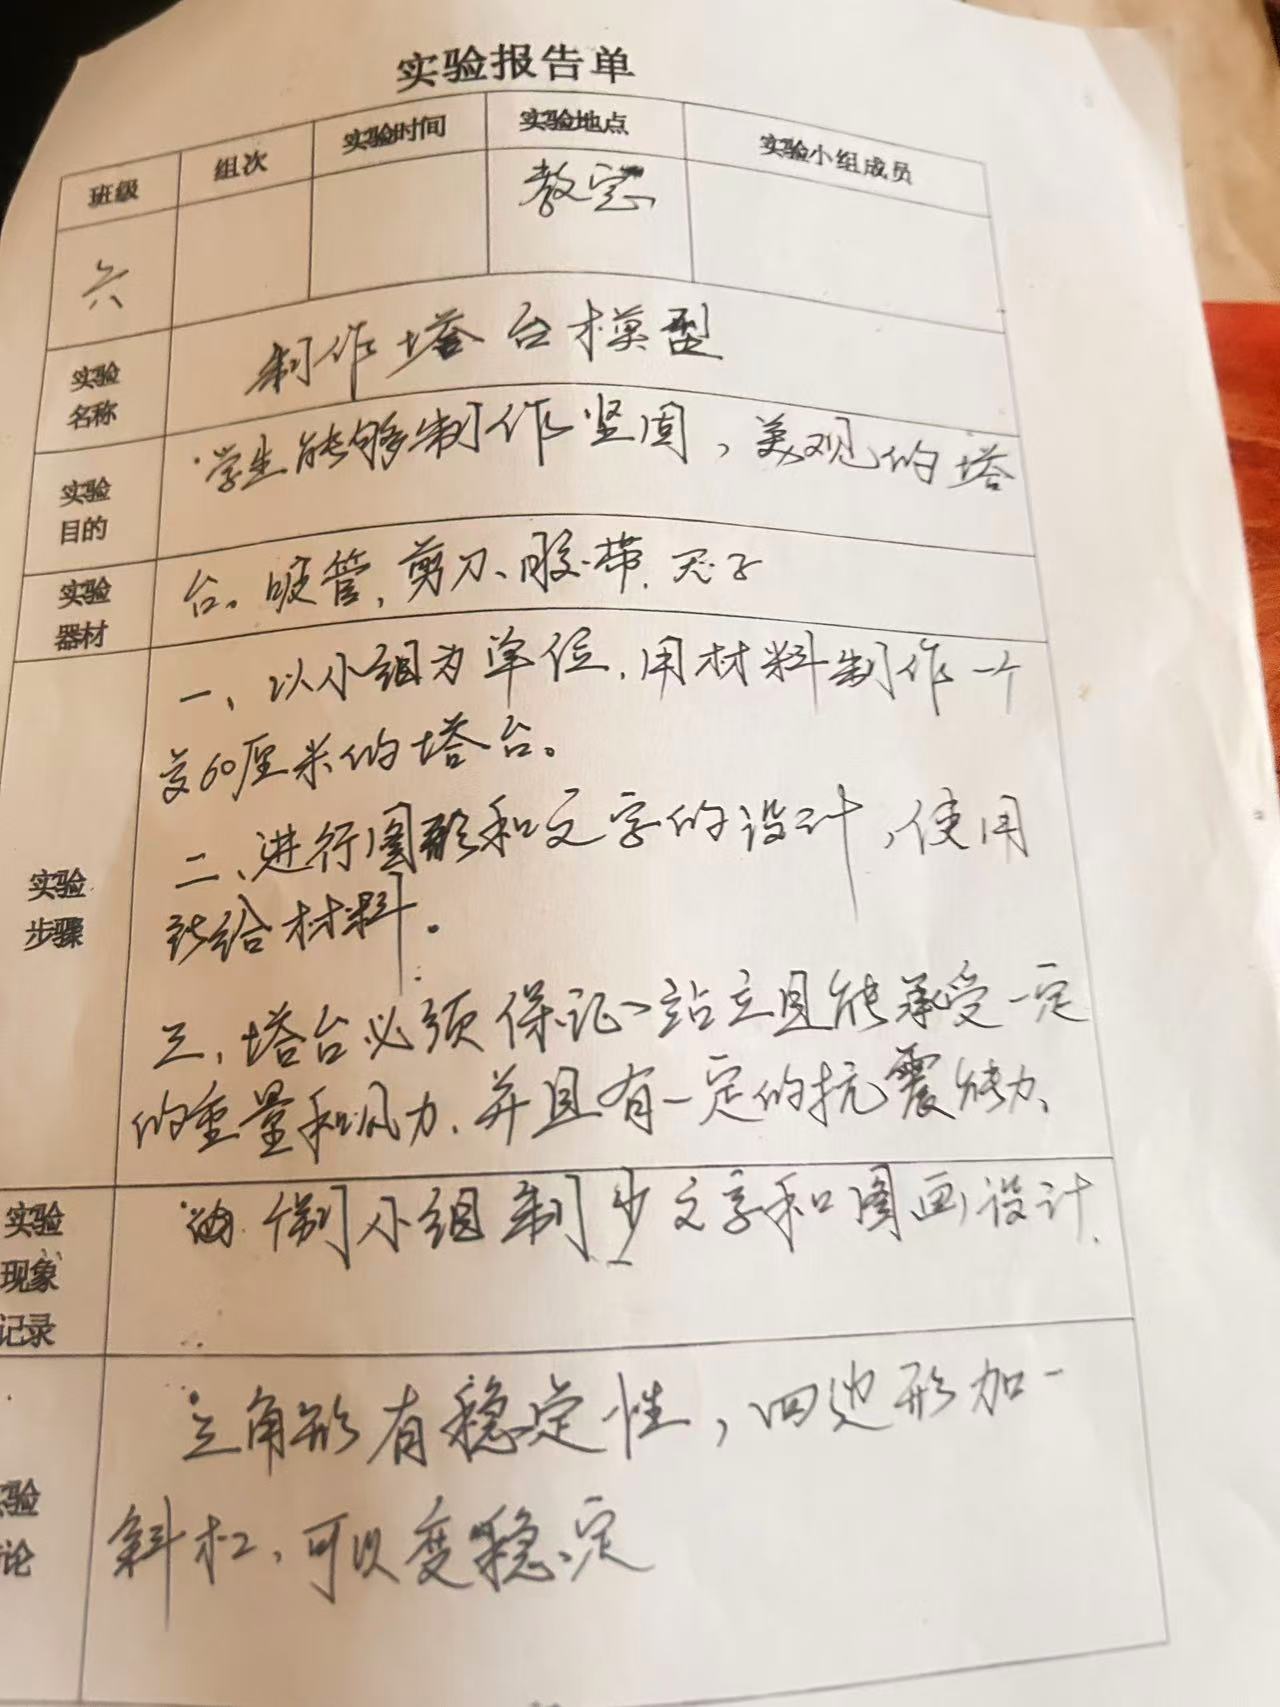 实验报告单
班级 组次 实验时间 实验地点 实验小组成员
六 教室
实验名称 制作塔台模型
实验目的 学生能够制作坚固，美观的塔
实验器材 台。吸管，剪刀、胶带、尺子
实验步骤
一、以小组为单位，用材料制作一个
高60厘米的塔台。
二、进行图形和文字的设计，使用
所给材料。
三、塔台必须保证站立且能承受一定
的重量和风力，并且有一定的抗震能力、
实验现象记录
小组制 文字和图画设计.
验论
三角形有稳定性，四边形加一
斜杠，可以变稳定